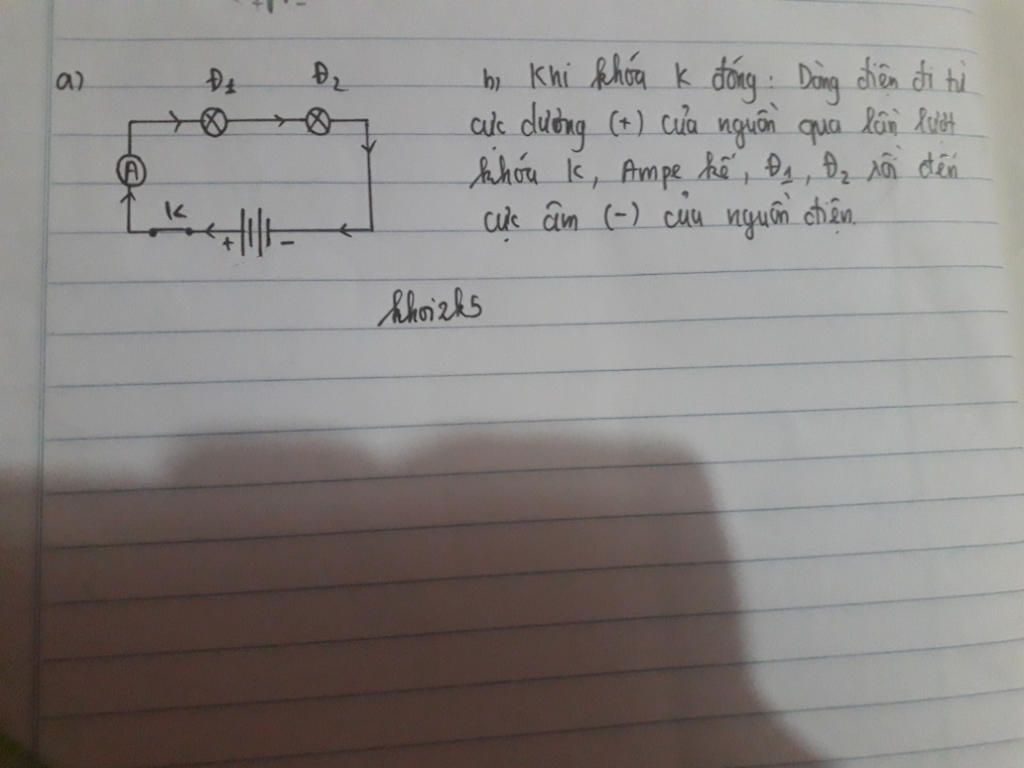 a)
Đ1 Đ2
A
K
+ -
b, Khi khóa K đóng: Dòng điện đi từ
cực dương (+) của nguồn qua lần lượt
khóa K, Ampe kế, Đ1, Đ2 rồi đến
cực âm (-) của nguồn điện.
khoi2k5